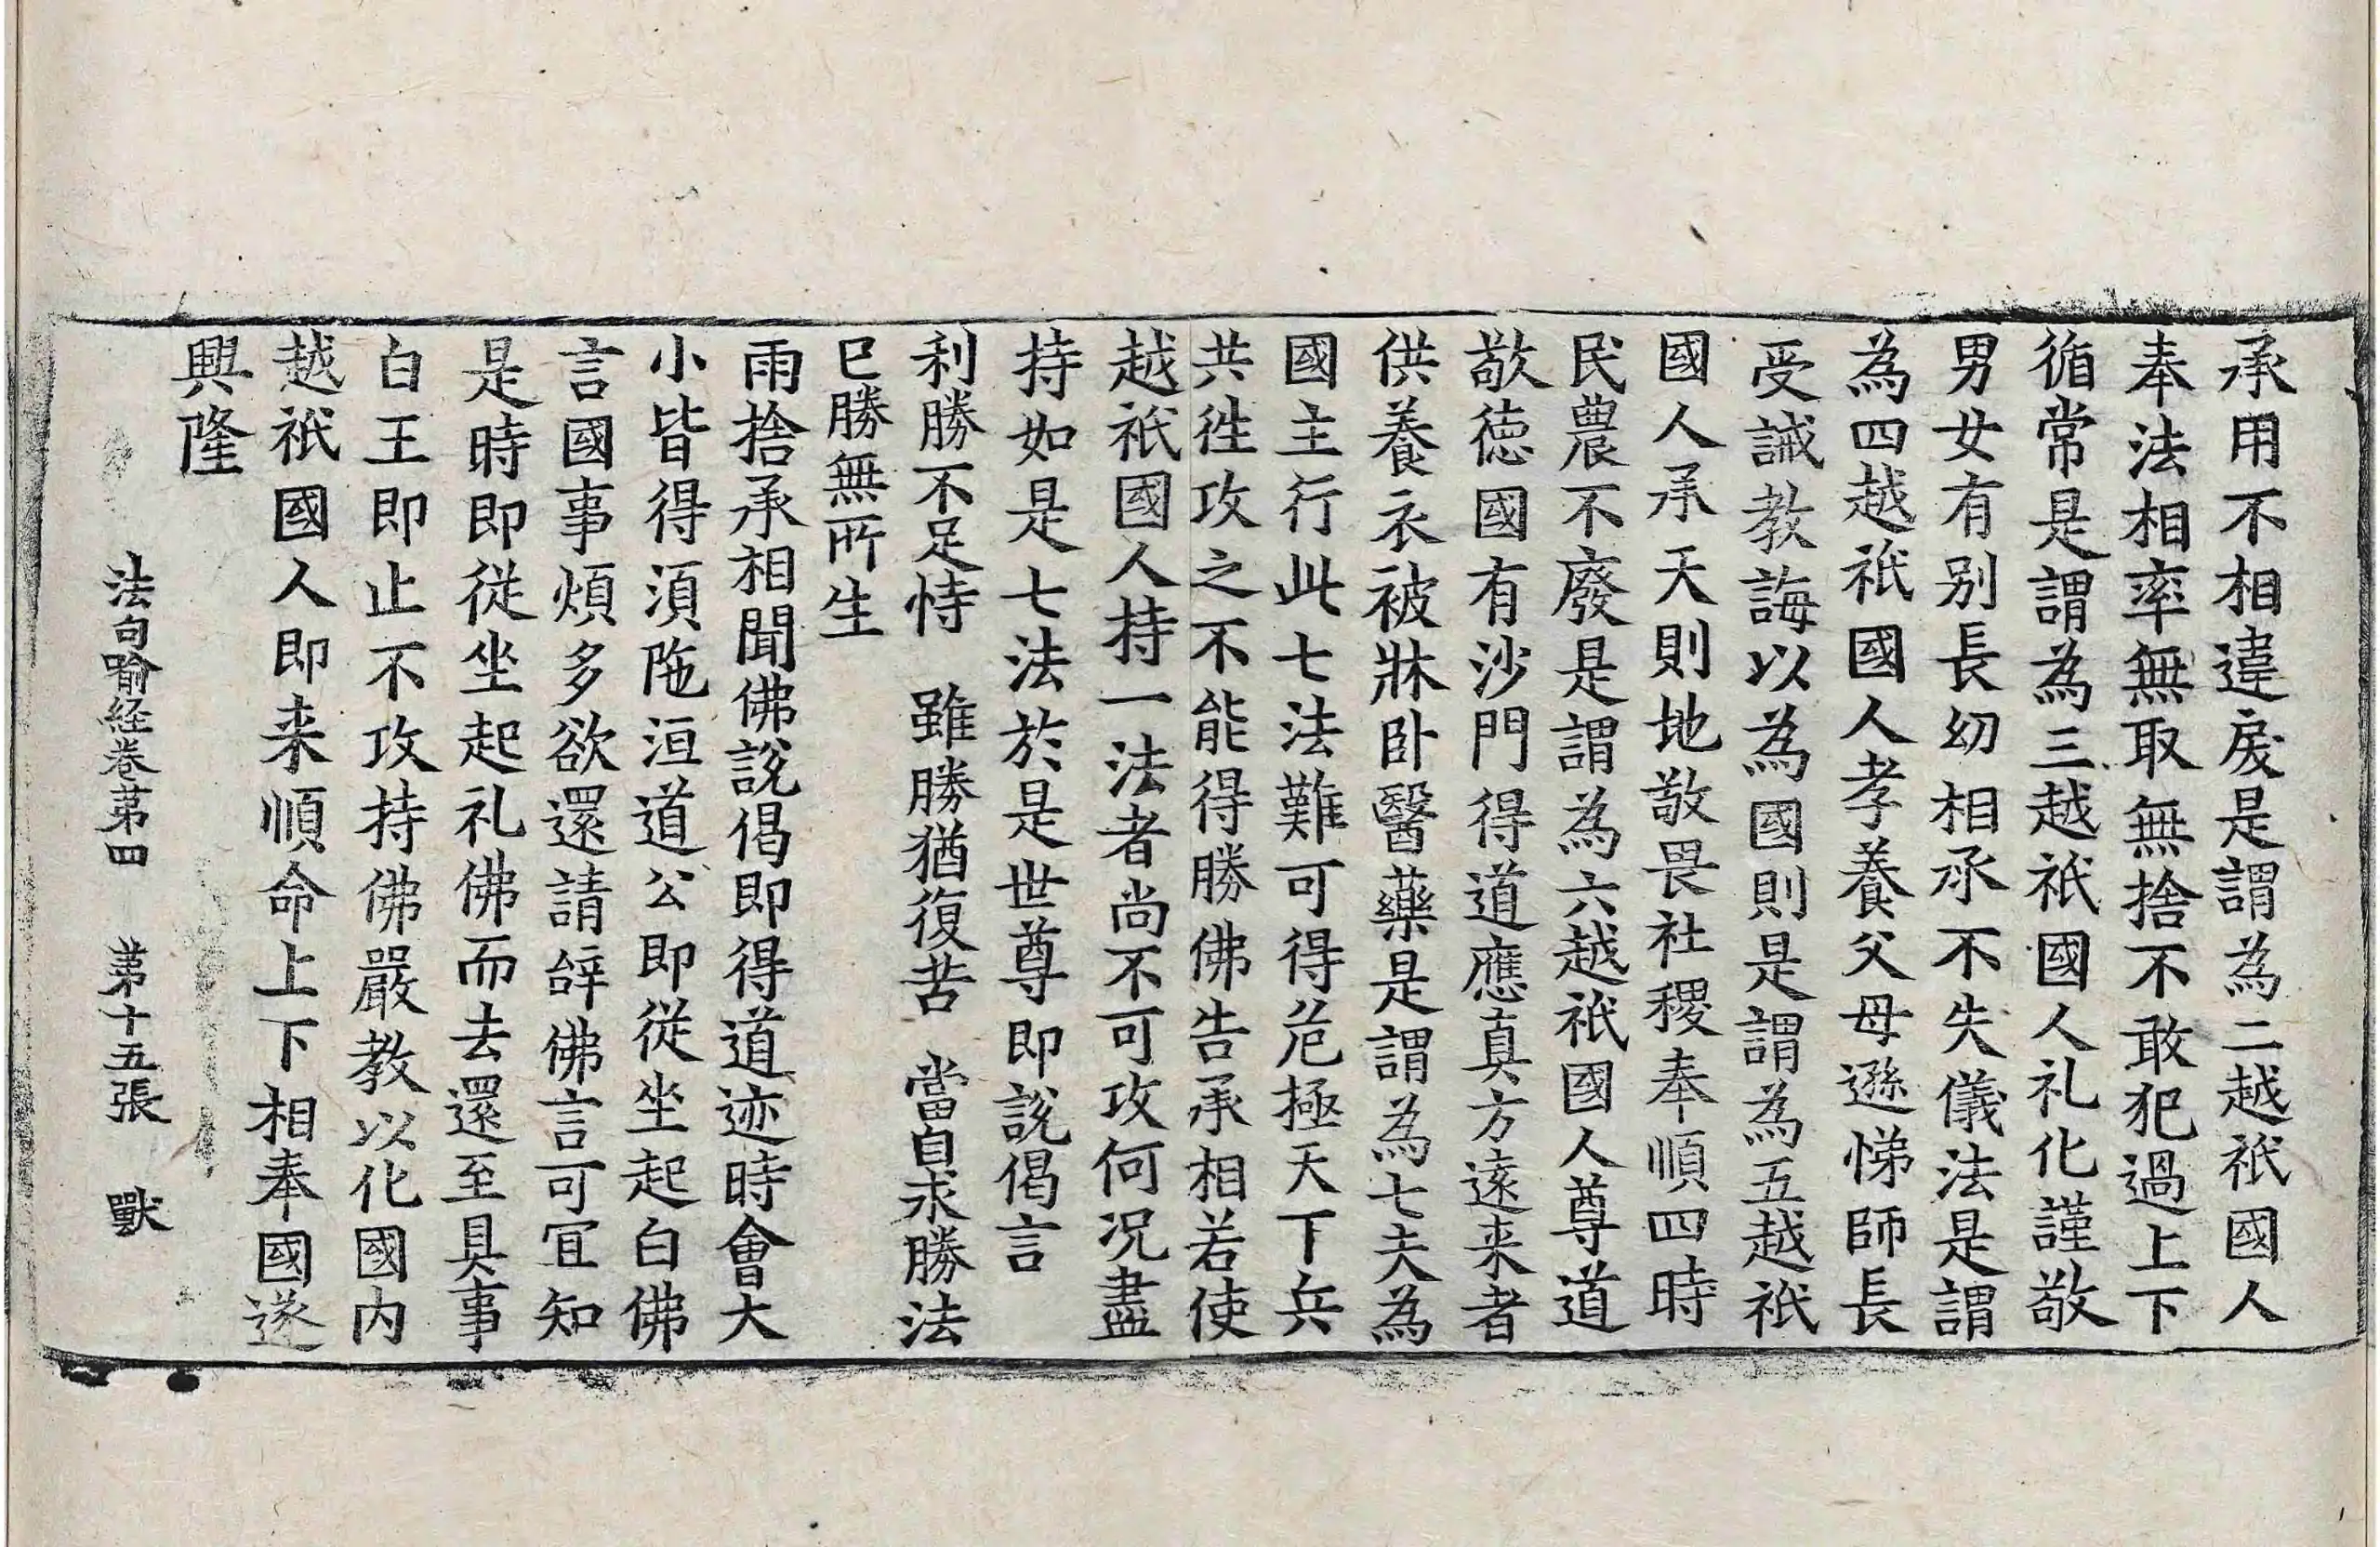 承用不相違戾是謂為二越祇國人
奉法相率無取無捨不敢犯過上下
循常是謂為三越祇國人礼化謹敬
男女有别長幼相承不失儀法是謂
為四越祇國人孝養父母遜悌師長
受誡教誨以為國則是謂為五越祇
國人承天則地敬畏社稷奉順四時
民農不廢是謂為六越祇國人尊道
敬徳國有沙門得道應真方遠来者
供養衣被牀卧醫藥是謂為七夫為
國主行此七法難可得危極天下兵
共徃攻之不能得勝佛告承相若使
越祇國人持一法者尚不可攻何况盡
持如是七法於是世尊即說偈言
利勝不足恃　雖勝猶復苦　當自求勝法
已勝無所生
雨捨承相聞佛說偈即得道迹時會大
小皆得須陁洹道公即從坐起白佛
言國事煩多欲還請辝佛言可宜知
是時即從坐起礼佛而去還至具事
白王即止不攻持佛嚴教以化國内
越祇國人即来順命上下相奉國遂
興隆
法句喻経卷苐四　苐十五張　獸